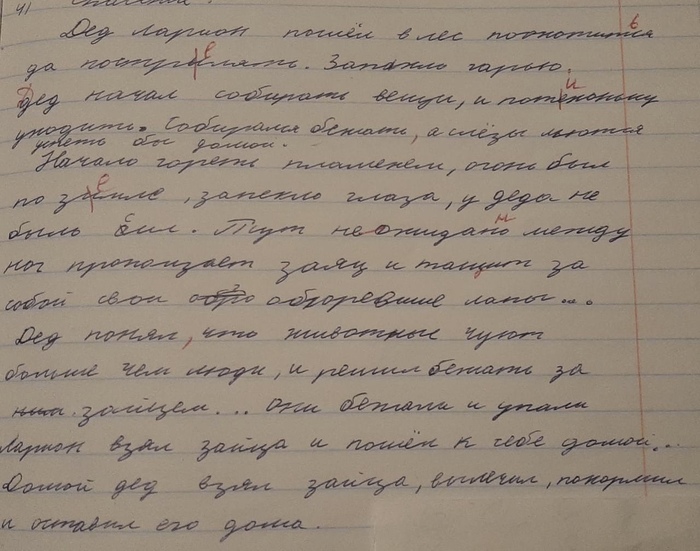 41
Дед Ларион пошёл в лес поохотится
да пострилять. Запахло гарью.
Дед начал собирать вещи, и потихоньку
уходить. Собирался бежать, а слёзы льются
уметь бы домой.
Начало гореть пламенем, огонь был
по земле, запекло глаза, у деда не
было сил. Тут неожидано между
ног проползает заяц и тащит за
собой свои обгоревшие лапы...
Дед понял, что животные чуют
больше чем люди, и решил бежать за
ним. зайцем... они бежали и упали
Ларион взял зайца и пошёл к себе домой...
Домой дед взял зайца, вылечил, покормил
и оставил его дома.